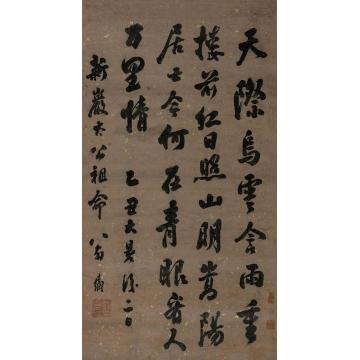 天際烏雲含雨重
樓前紅日照山明嵩陽
居士今何在青眼看人
万里情 乙丑大暑後二日
新巖大公祖命